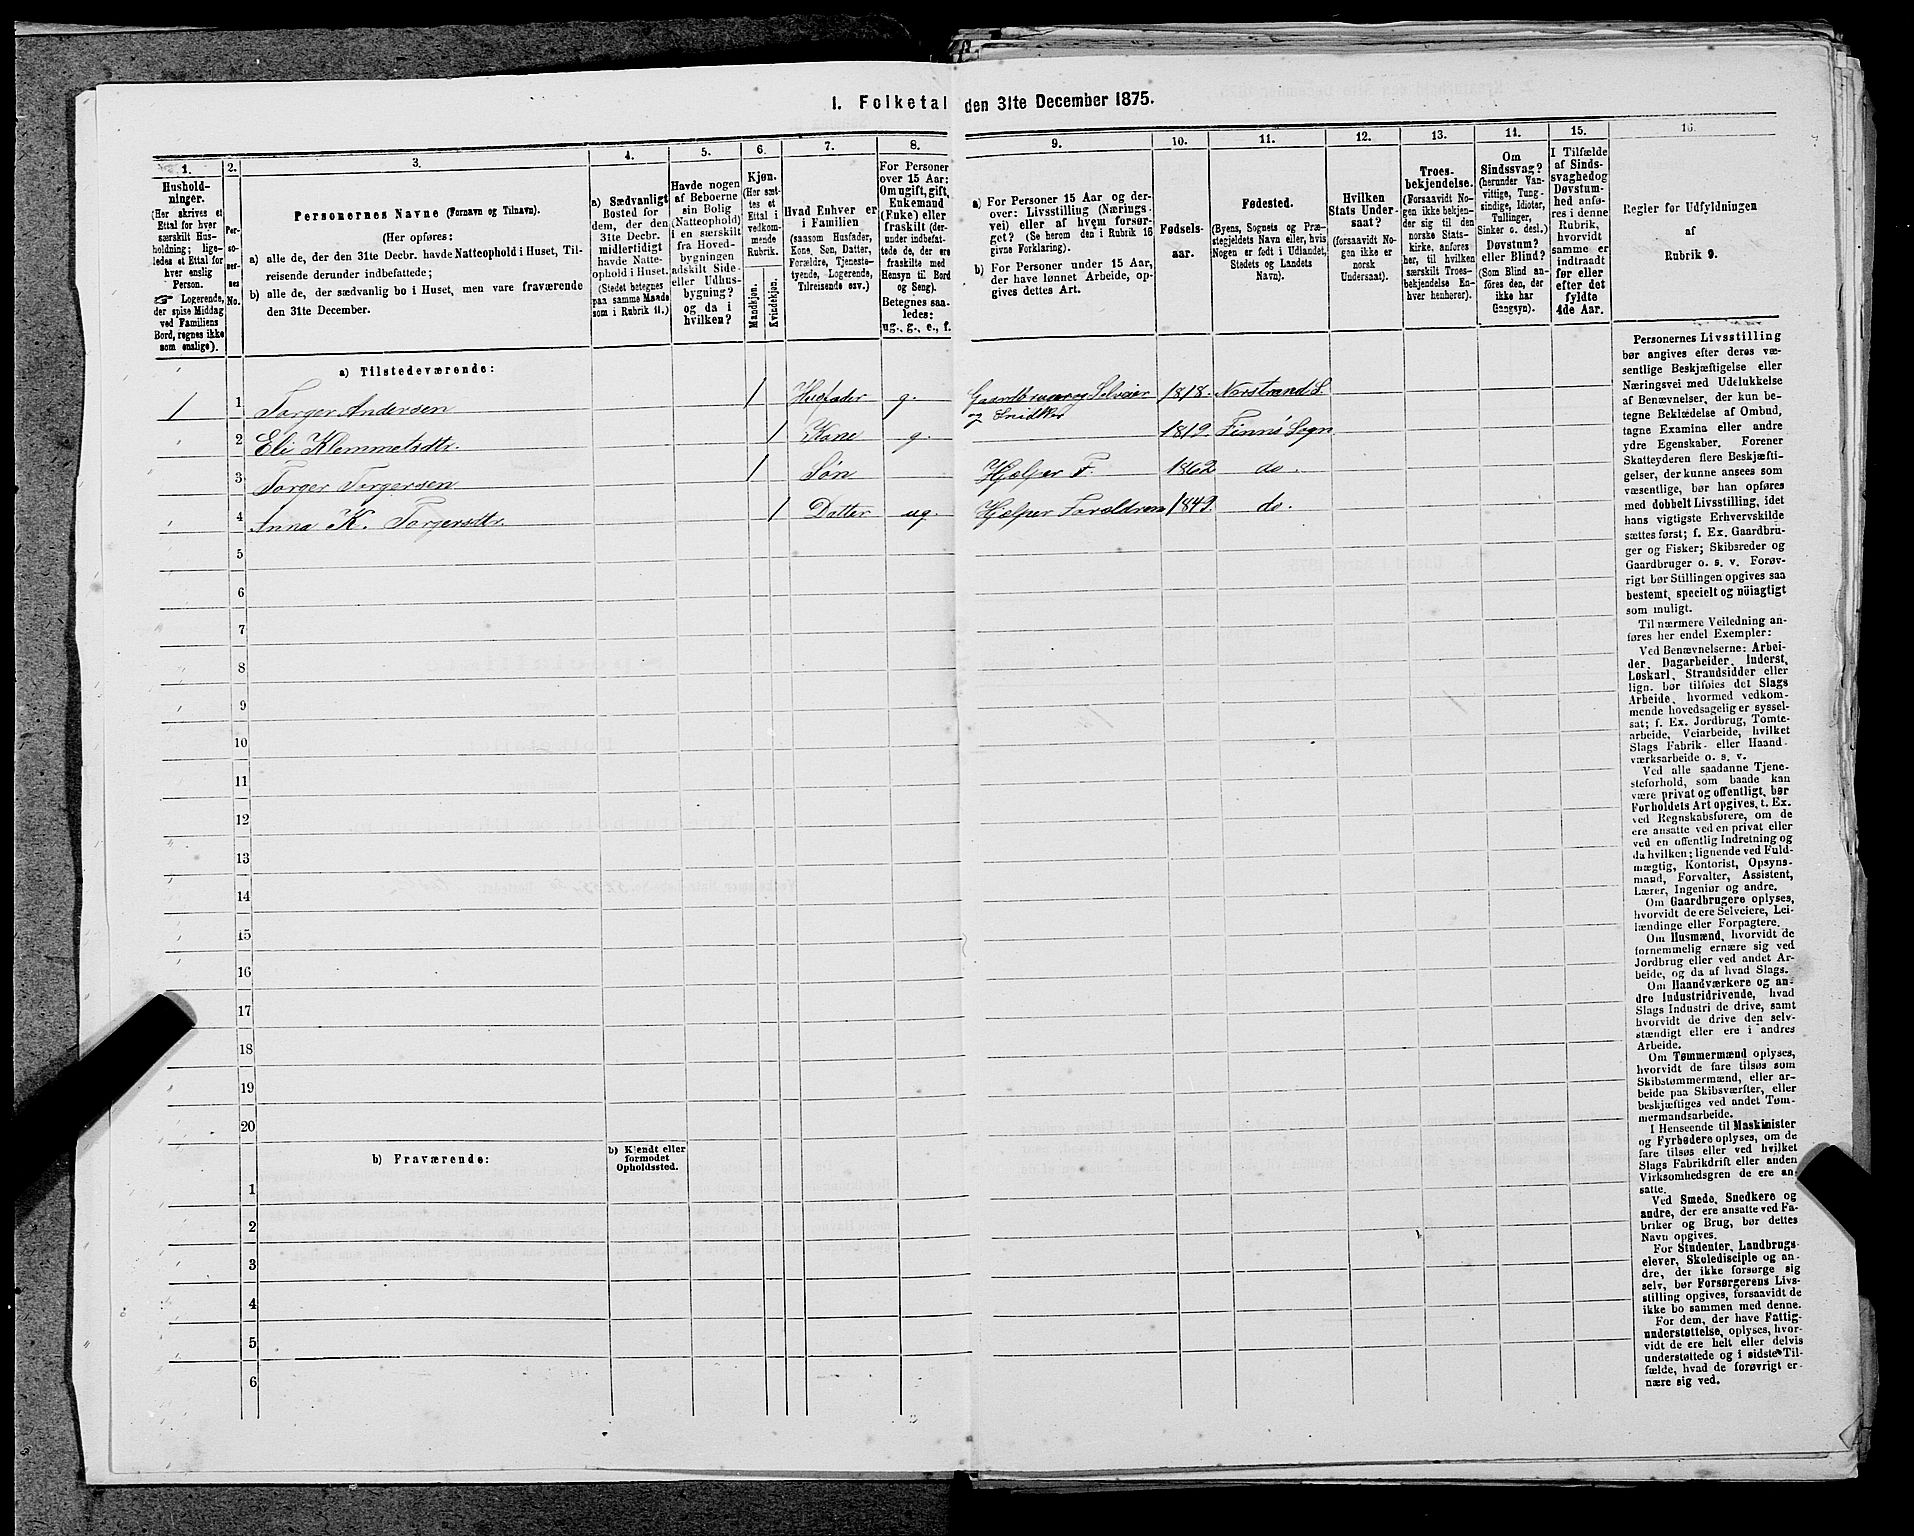 1. Folketal den 31te December 1875.
1. 2. 3. 4. 5. 6. 7. 8. 9. 10. 11. 12. 13. 14. 15. 16.
Hushold-
ninger.
(Her skrives et
Ettal for hver
særskilt Hus-
holdning; lige-
ledes et Ettal for
hver enslig
Person.
☞ Logerende,
der spise Middag
ved Familiens
Bord, regnes ikke
som enslige).
Per-
so-
ner-
nes
No.
Personernes Navne (Fornavn og Tilnavn).
(Her opføres:
a) alle de, der den 31te Decbr. havde Natteophold i Huset, Til-
reisende derunder indbefattede;
b) alle de, der sædvanlig bo i Huset, men vare fraværende
den 31te December.
a) Sædvanligt
Bosted for
dem, der den
31te Decbr.
midlertidigt
havde Natte-
ophold i Huset.
(Stedet betegnes
paa samme Maade
som i Rubrik 11.)
Havde nogen
af Beboerne
sin Bolig
(Natteophold)
i en særskilt
fra Hoved-
bygningen
adskilt Side-
eller Udhus-
bygning?
og da i
hvilken?
Kjøn.
(Her sæt-
tes et
Ettal i
vedkom-
mende
Rubrik.
Mandkjøn.
Kvindekjøn.
Hvad Enhver er
i Familien
(saasom Husfader,
Kone, Søn, Datter,
Forældre, Tjeneste-
tyende, Logerende,
Tilreisende osv.)
For Personer
over 15 Aar:
Om ugift, gift,
Enkemand
(Enke) eller
fraskilt (der-
under indbefat-
tede de, der
ere fraskilte med
Hensyn til Bord
og Seng).
Betegnes saa-
ledes:
ug., g., e., f.
a) For Personer 15 Aar og der-
over: Livsstilling (Nærings-
vei) eller af hvem forsør-
get? (Se herom den i Rubrik 16
givne Forklaring).
b) For Personer under 15 Aar,
der have lønnet Arbeide, op-
gives dettes Art.
Fødsels-
aar.
Fødested.
(Byens, Sognets og Præ-
stegjeldets Navn eller, hvis
Nogen er født i Udlandet,
Stedets og Landets
Navn).
Hvilken
Stats Under-
saat?
(forsaavidt No-
gen ikke er
norsk
Undersaat).
Troes-
bekjendelse.
(Forsaavidt No-
gen ikke bekjen-
der sig til den
norske Stats-
kirke, anføres
her, til hvilken
særskilt Troes-
bekjendelse En-
hver henhører).
Om
Sindssvag?
(herunder Van-
vittige, Tung-
sindige, Idioter,
Tullinger,
Sinker o. desl.)
Døvstum?
eller Blind?
(Som Blind an-
føres den, der
ikke har
Gangsyn).
I Tilfælde
af Sinds-
svaghed og
Døvstum-
hed anfø-
res i denne
Rubrik,
hvorvidt
samme er
indtraadt
før eller
efter det
fyldte
4de Aar.
Regler for Udfyldningen
af
Rubrik 9.
a) Tilstedeværende:
1 1 Torger Andersen 1 Husfader g. Gaardbruger Selveier 1818. Norstrand S.
og Snidker
2 Eli Klemmetsdtr. 1 Kone g. 1819. Finnø Sogn
3 Torger Torgersen 1 Søn Hjelper F. 1862 do.
4 Anna K. Torgersdtr. 1 Datter ug. Hjelper Foraldrene 1849. do.
5
6
7
8
9
10
11
12
13
14
15
16
17
18
19
20
b) Fraværende:
b) Kjendt eller
formodet
Opholdssted.
1
2
3
4
5
6
Personernes Livsstilling
bør angives efter deres væ-
sentlige Beskjæftigelse eller
Næringsvei med Udelukkelse
af Benævnelser, der kun be-
tegne Beklædelse af Ombud,
tagne Examina eller andre
ydre Egenskaber. Forener
Skatteyderen flere Beskjæfti-
gelser, der kunne ansees som
væsentlige, bør han opføres
med dobbelt Livsstilling, idet
hans vigtigste Erhvervskilde
sættes først; f. Ex. Gaardbru-
ger og Fisker; Skibsreder og
Gaardbruger o. s. v. Forøv-
rigt bør Stillingen opgives saa
bestemt, specielt og nöiagtigt
som muligt.
Til nærmere Veiledning an-
føres her endel Exempler:
Ved Benævnelserne: Arbei-
der, Dagarbeider, Inderst,
Løskarl, Strandsidder eller
lign. bør tilføies det Slags
Arbeide, hvormed vedkom-
mende hovedsagelig er syssel-
sat; f. Ex. Jordbrug, Tomte-
arbeide, Veiarbeide, hvilket
Slags Fabrik- eller Haand-
værksarbeide o. s. v.
Ved alle saadanne Tjene-
steforhold, som baade kan
være privat og offentligt, bør
Forholdets Art opgives, t. Ex.
ved Regnskabsførere, om de
ere ansatte ved en privat eller
ved en offentlig Indretning og
da hvilken; lignende ved Fuld-
mægtig, Kontorist, Opsyns-
mand, Forvalter, Assistent,
Lærer, Ingeniør og andre.
Om Gaardbrugere oplyses,
hvorvidt de ere Selveiere, Lei-
lændinge eller Forpagtere.
Om Husmænd, hvorvidt de
fornemmelig ernære sig ved
Jordbrug eller ved andet Ar-
beide, og da af hvad Slags.
Om Haandværkere og an-
dre Industridrivende, hvad
Slags Industri de drive, samt
hvorvidt de drive den selv-
stændigt eller ere i andres
Arbeide.
Om Tømmermænd oplyses,
hvorvidt de fare tilsøs som
Skibstømmermænd, eller ar-
beide paa Skibsværfter, eller
beskjæftiges ved andet Tøm-
mermandsarbeide.
I Henseende til Maskinister
og Fyrbødere oplyses, om de
fare tilsøs eller ved hvilket
Slags Fabrikdrift eller anden
Virksomhedsgren de ere an-
satte.
Ved Smede, Snedkere og
andre, der ere ansatte ved Fa-
briker og Brug, bør dettes
Navn opgives.
For Studenter, Landbrugs-
elever, Skoledisciple og an-
dre, der ikke forsørge sig
selv, bør Forsørgerens Livs-
stilling opgives, forsaavidt de
ikke bo sammen med denne.
For dem, der have Fattig-
understøttelse, oplyses, hvor-
vidt de ere helt eller delvis
understøttede og i sidste Til-
fælde, hvad de forøvrigt er-
nære sig ved.